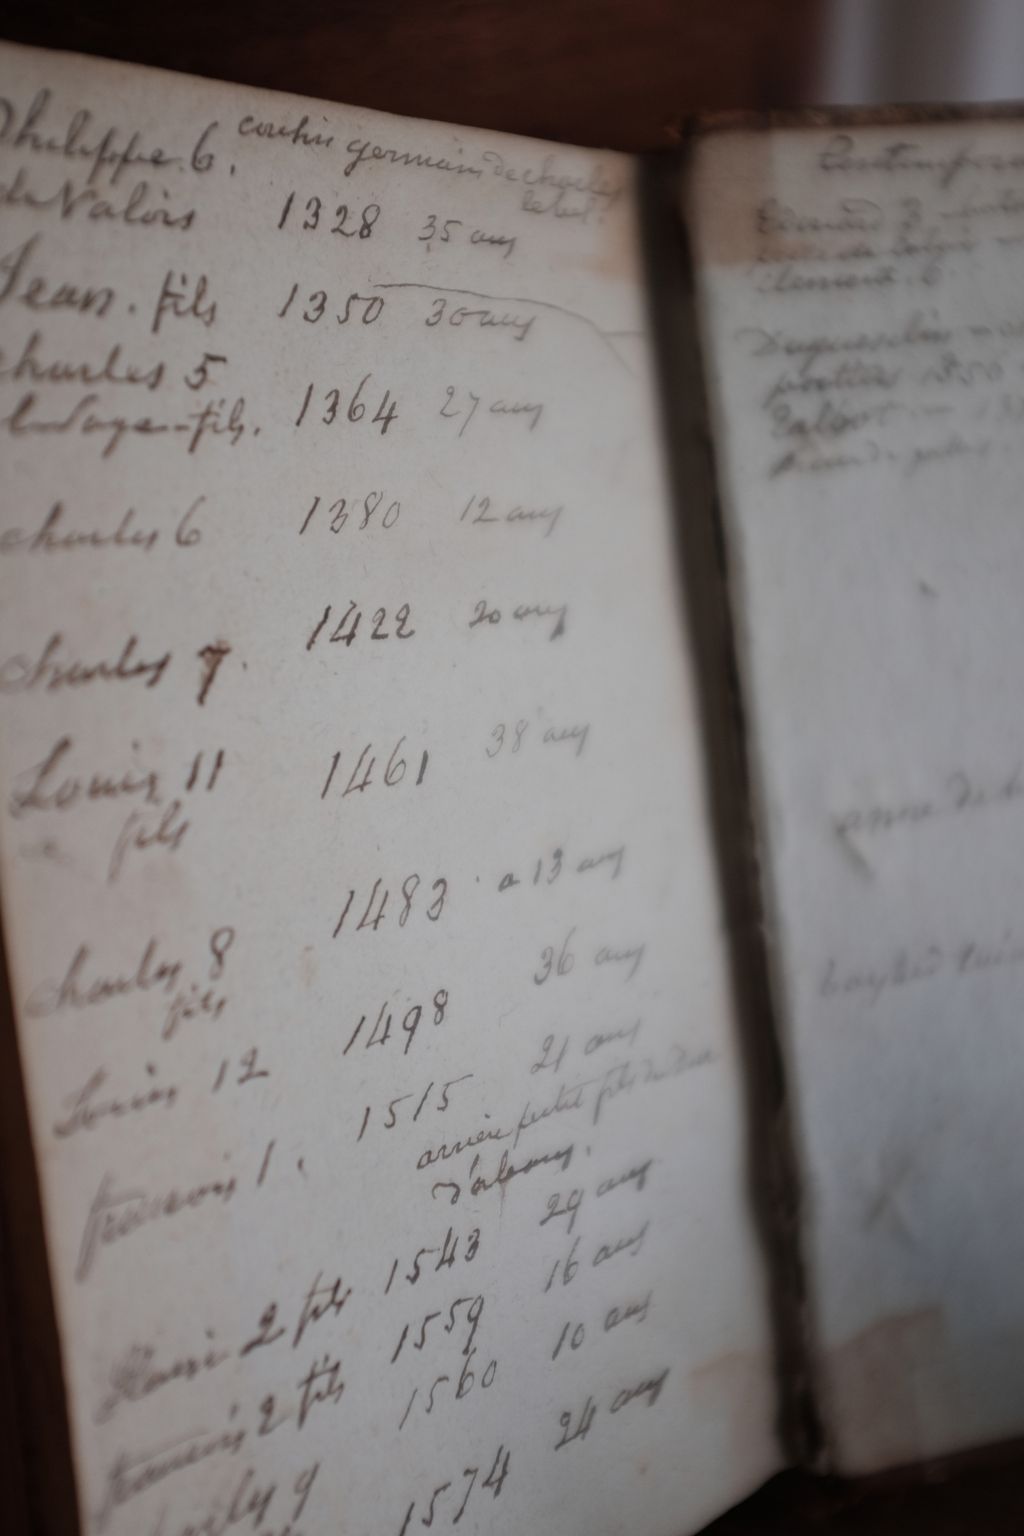 Philippe 6. cousin germain de charles
lebel.
de Valois 1328 35 ans
Jean. fils 1350 30 ans
charles 5
le Sage-fils. 1364 27 ans
charles 6 1380 12 ans
charles 7. 1422 20 ans
Louis 11 1461 38 ans
fils
charles 8 1483 a 13 ans
fils
Louis 12 1498 36 ans
francois 1. 1515 21 ans
arrière petit fils du Duc
d'orleans.
Henri 2 fils 1543 29 ans
francois 2 fils 1559 16 ans
charles 9 1560 10 ans
1574 24 ans
Edouard 3
Clement. 6
Duguesclin
poitiers 1356
Talbot
anne de b
bayard